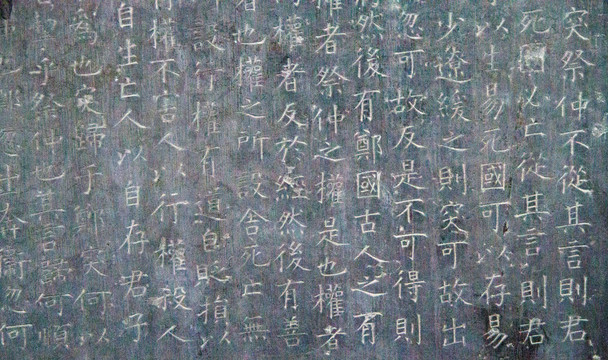 突祭仲不從其言則君
死國必亡從其言則君
以生易死國可以存易
少遼緩之則突可故出
忽可故反是不可得則
然後有鄭國古人之有
權者祭仲之權是也權者
權者反於經然後有善
者也權之所設舍死亡無
設行權有道自貶損以
行權不害人以行權殺人
自生亡人以自存君子
為也突歸于鄭突何以
挈乎祭仲也其言歸何順
也忽出奔衛忽何